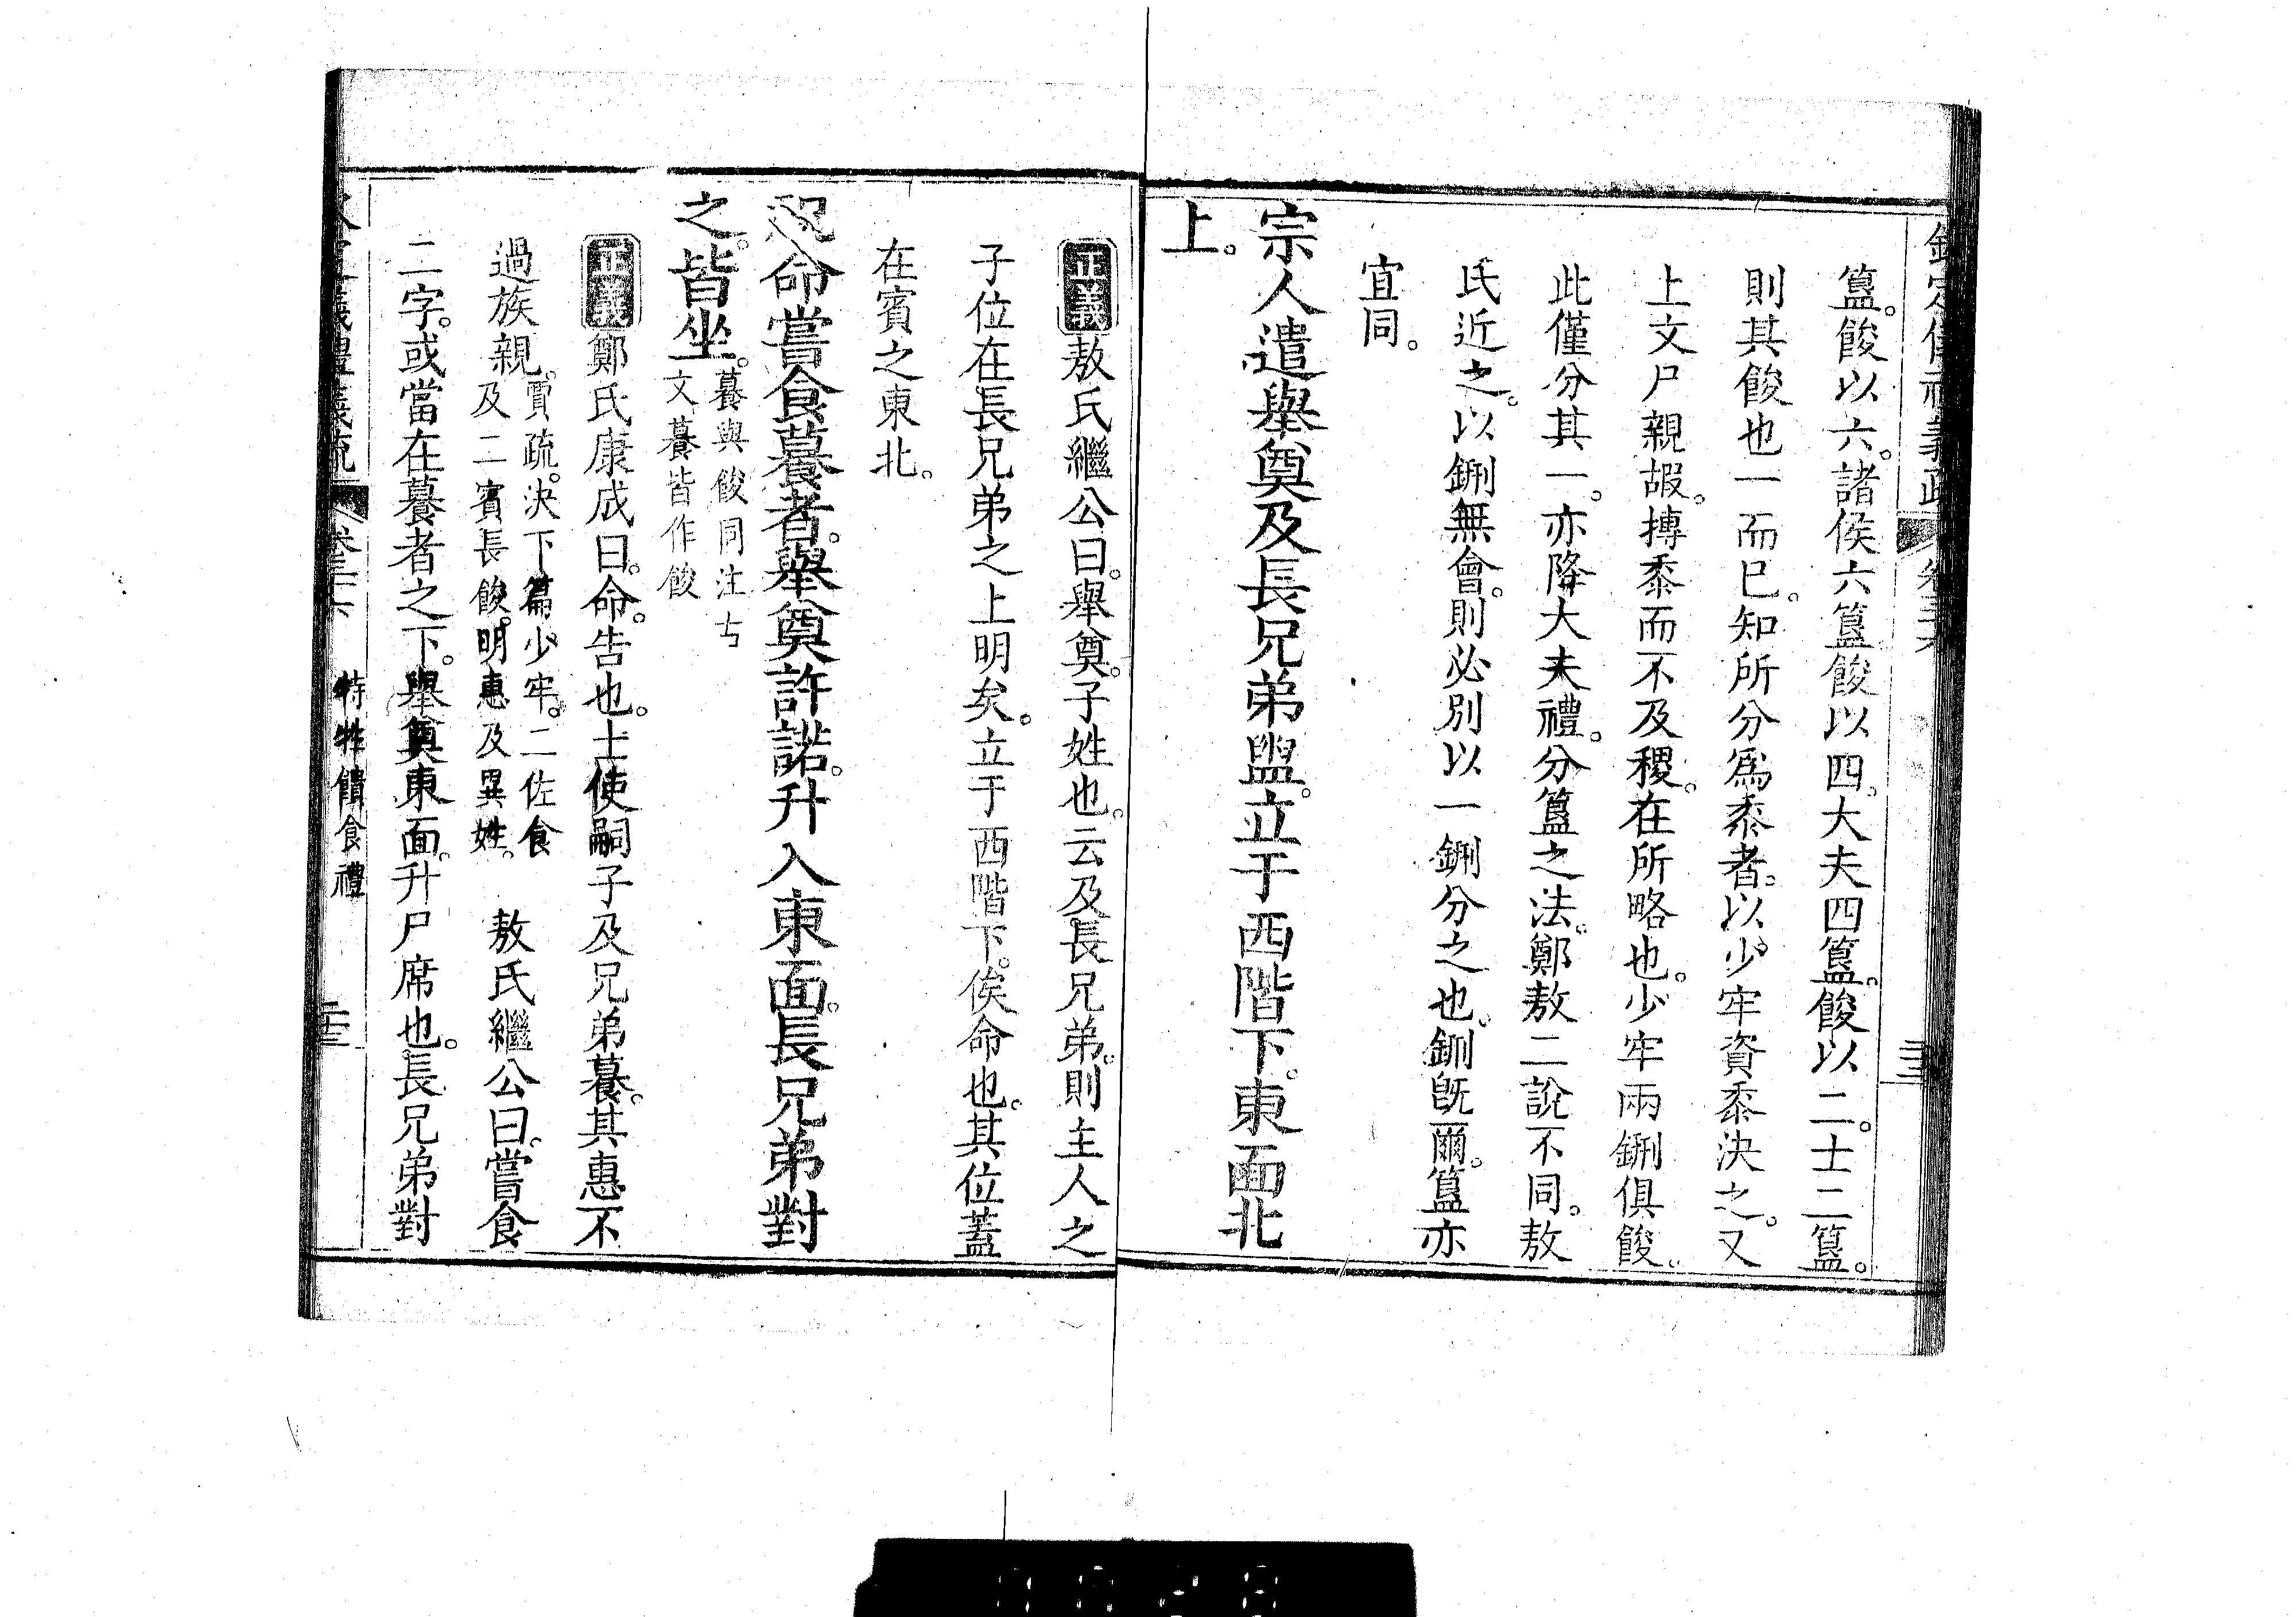 簋。餕以六。諸侯六簋餕以四。大夫四簋。餕以二。士二簋。
則其餕也一而已。知所分爲黍者。以少牢資黍決之。又
上文尸親嘏。摶黍而不及稷。在所略也。少牢兩鉶俱餕。
此僅分其一。亦降大夫禮。分簋之法。鄭敖二說不同。敖
氏近之。以鉶無會。則必別以一鉶分之也。鉶旣爾。簋亦
宜同。
宗人遣舉奠及長兄弟盥。立于西階下。東面北
上。
正義敖氏繼公曰。舉奠。子姓也。云及長兄弟。則主人之
子位在長兄弟之上明矣。立于西階下。俟命也。其位蓋
在賓之東北。
祝命嘗食䬸者。舉奠許諾。升入東面。長兄弟對
之。皆坐。䬸與餕同注古
文䬸皆作餕
正義鄭氏康成曰。命。告也。士使嗣子及兄弟䬸。其惠不
過族親。賈疏。決下篇少牢。二佐食
及二賓長餕。明惠及異姓。 敖氏繼公曰。嘗食
二字。或當在䬸者之下。舉奠東面。升尸席也。長兄弟對
特牲饋食禮